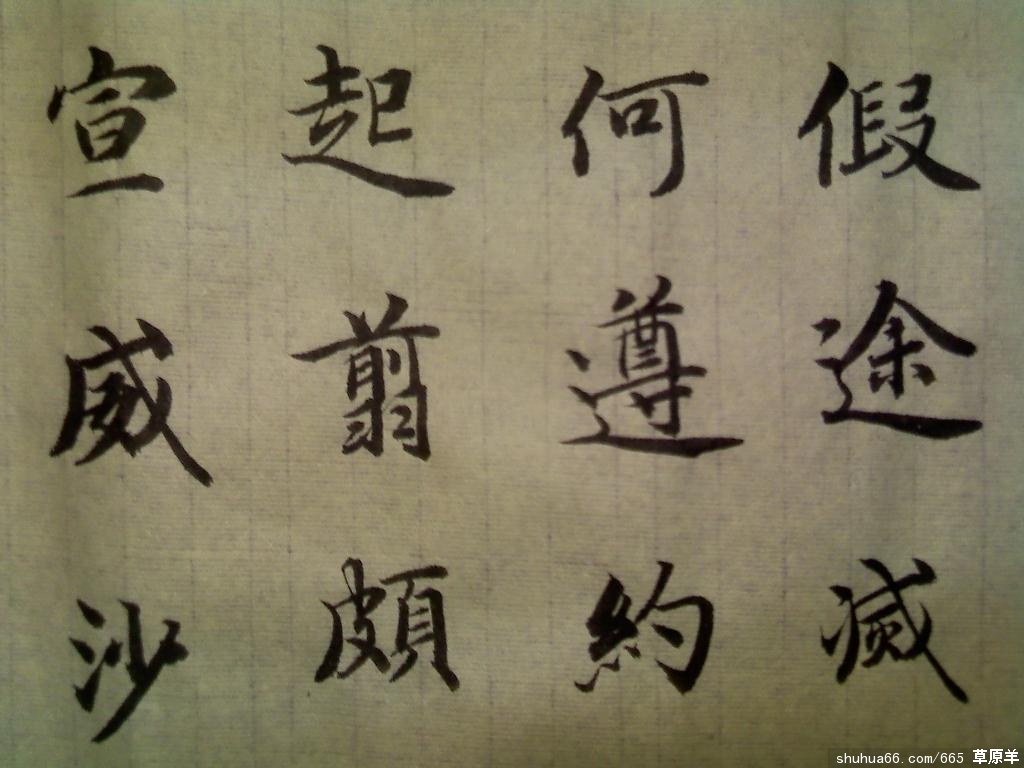 假途滅
何遵約
起翦頗
宣威沙
shuhua66.com/665 草原羊